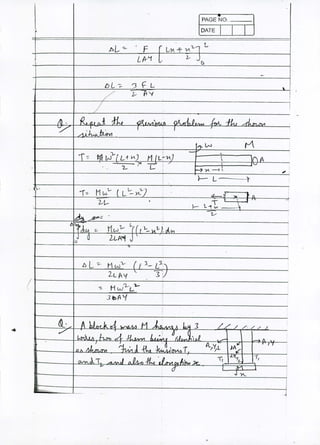 PAGE NO.
DATE
ΔL = F/LAY [Lx + x²/2]₀ᴸ
ΔL = 3FL/2AY
Q. Repeat the previous problem for the shown
situation
T = Mω²(L+x)/2 · M(L-x)/L
ω M A
x
L
T = Mω²/2L (L²-x²)
A
L+x/2
∫dy = Mω²/2LAY ∫(L²-x²)dx
ΔL = Mω²/2LAY (L³-L³/3)
= Mω²L²/3AY
Q. A block of mass M hangs by 3
rods, two of them being identical
as shown. Find the tensions T₁
and T₂ and also the elongation x.
A,Y,L A,Y
T₁ T₂ T₁
M
x